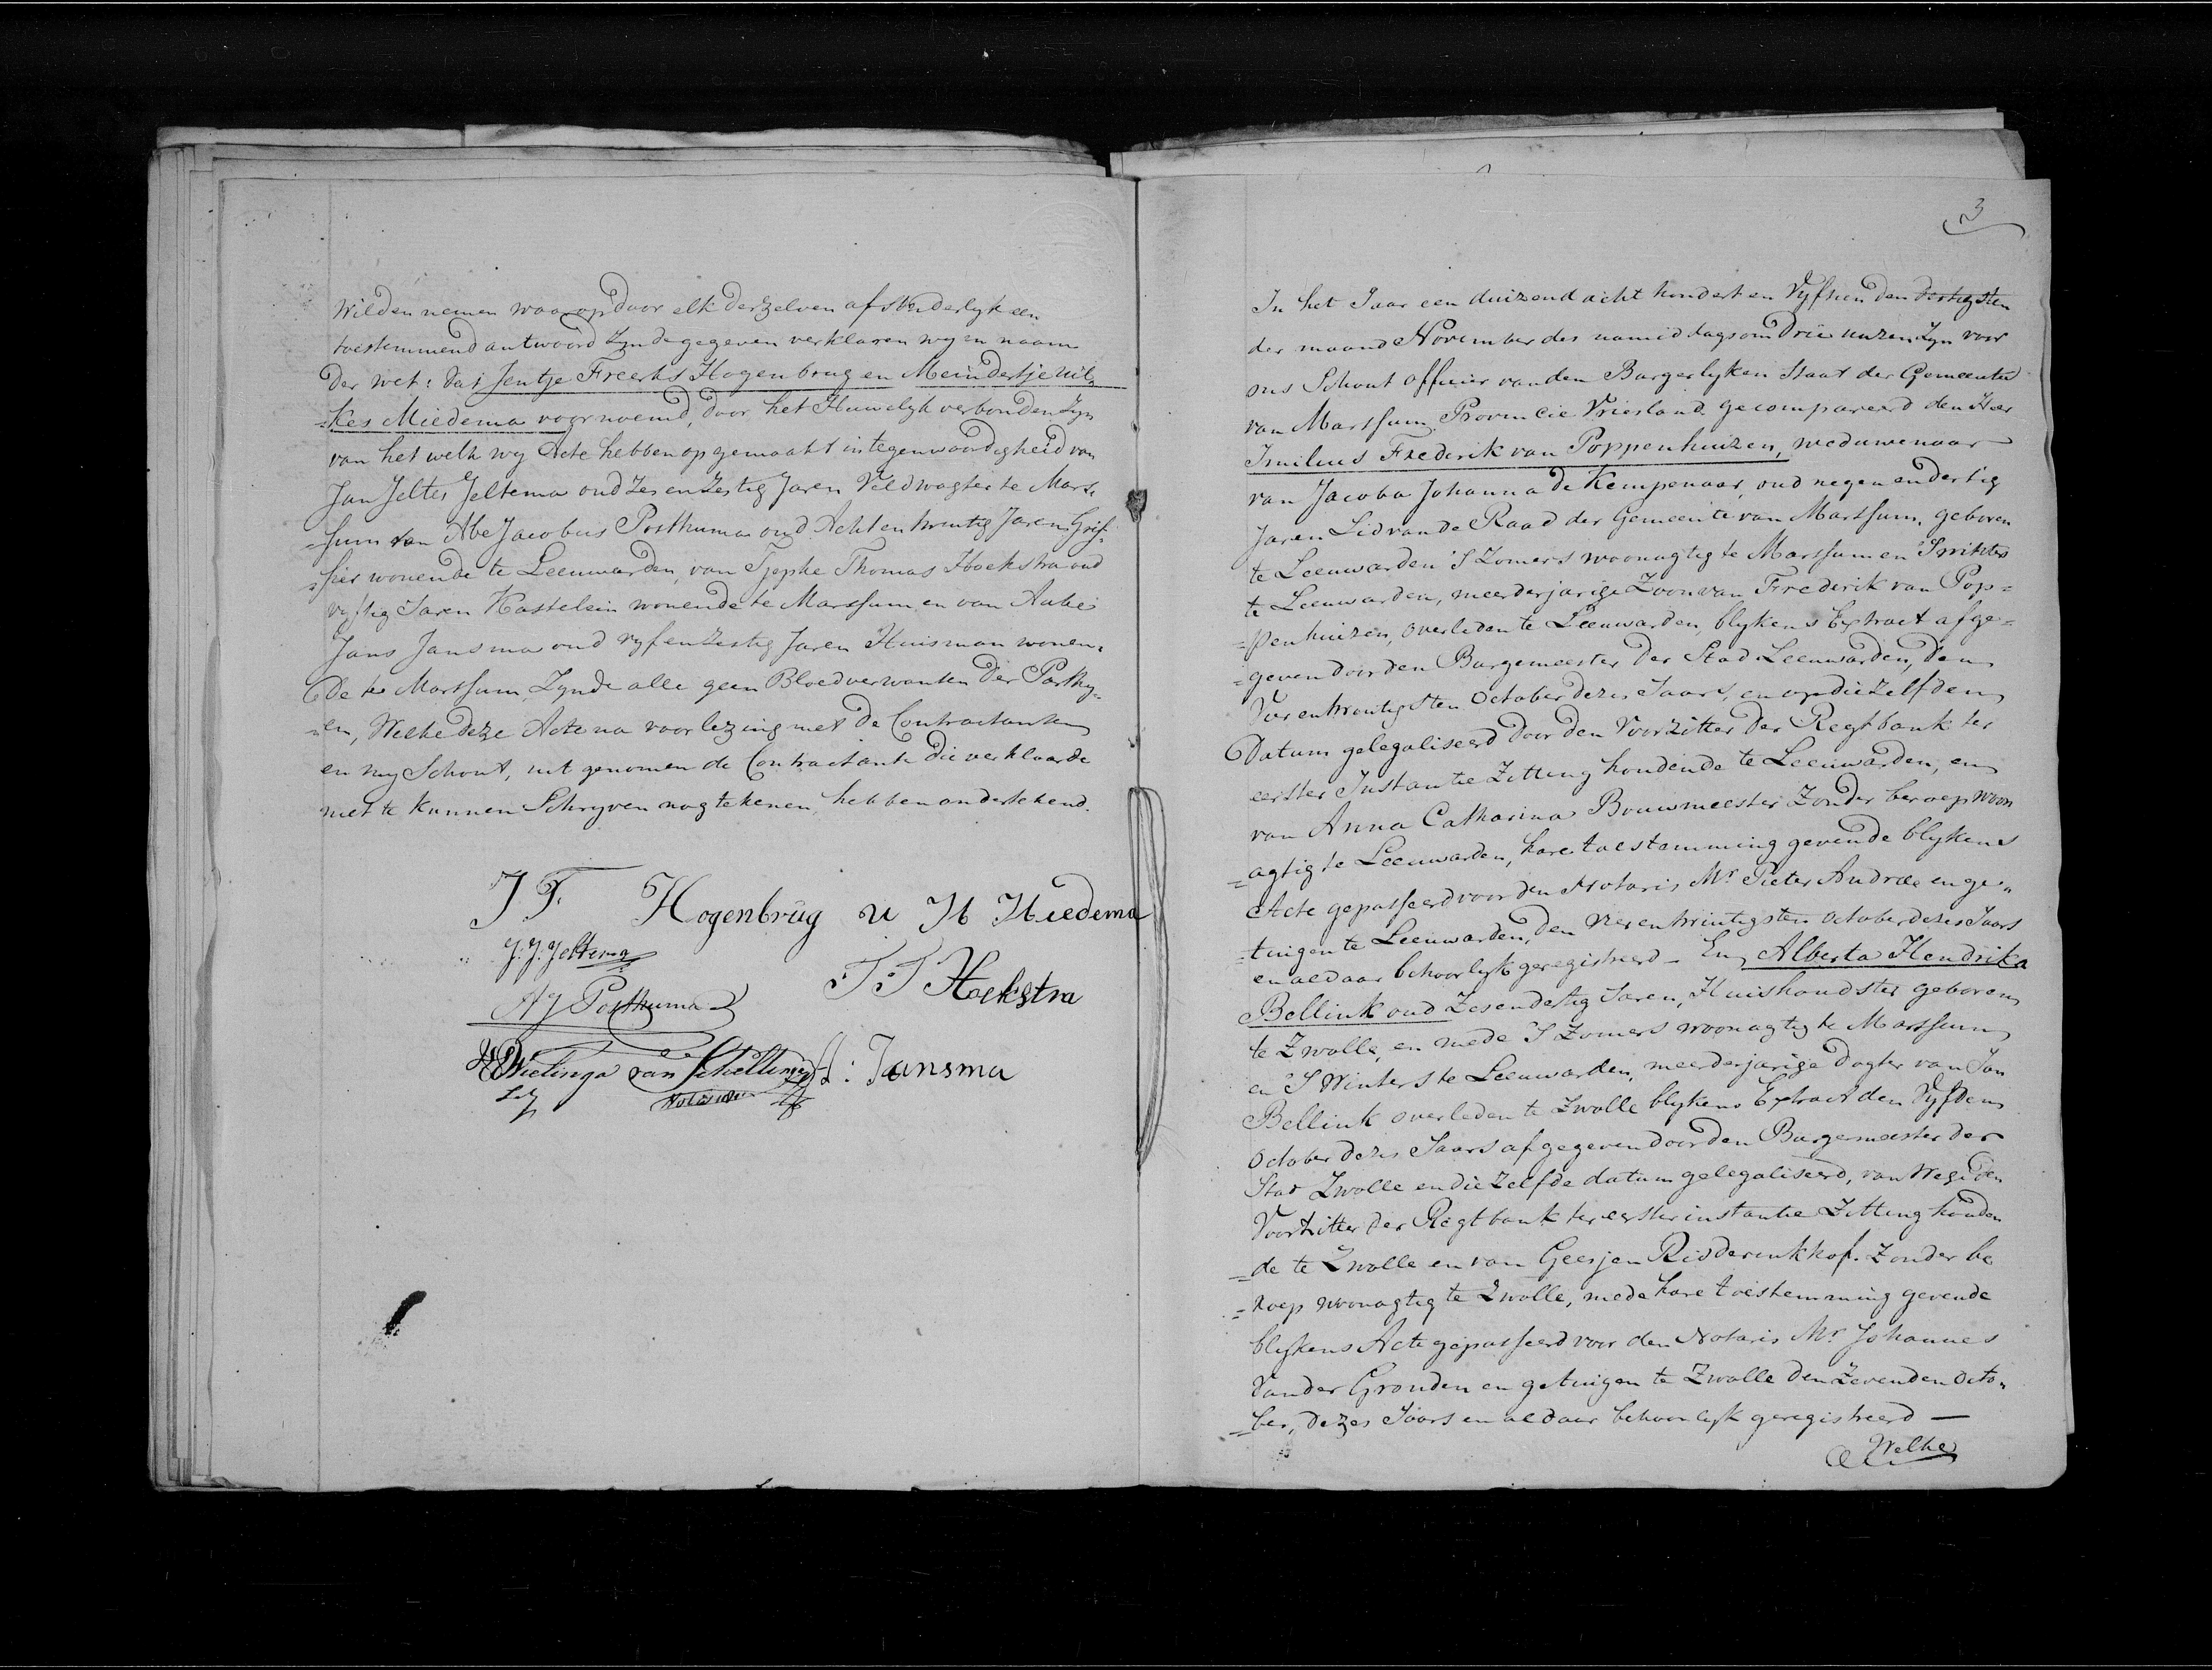 Wilden nemen waarop door elk derzelven afsonderlyk een
toestemmend antwoord Zynde gegeven verklaren wy en naam
der wet: dat Jentje Freerks Hogenbrug en Meindertje uil-
=kes Miedema voornoemd, door het Huwelyk verbonden Zyn
van het welk wy Acte hebben opgemaakt in tegenwoordigheid van
Jan Jeltes Jeltema oud Zes en Zestig Jaren Veldwagter te Mars-
=sum van Abe Jacobus Posthuma oud Acht en twintig Jaren Grif-
=fier wonende te Leeuwarden, van Tjepke Thomas Hoekstra oud
vyftig Jaren Kastelein wonende te Marssum en van Auke
Jans Jansma oud vyf en Zestig Jaren Huisman wonen-
De te Marssum, Zynde alle geen Bloedverwanten der Parthy-
=en, Welke deze Acte na voorlezing met de Contractanten
en my Schout, uit genomen de Contractante die verklaarde
niet te kunnen Schryven nog tekenen, hebben ondertekend.
J F. Hogenbrug u M Miedema
J: J: Jeltema
T T Hoekstra
A J Posthuma
Wielinga van Scheltinga A: J: Jansma
3
In het Jaar een duizend acht hondert en Vyftien den dertigsten
der maand November des namiddags om Drie uuren Zyn voor
ons Schout officier van den Burgerlyken Staat der Gemeente
van Marssum, Provincie Vriesland gecompareerd den Heer
Imilius Frederik van Poppenhuizen, weduwenaar
van Jacoba Johanna de Kempenaar, oud negen en dertig
Jaren Lid van de Raad der Gemeente van Marssum, geboren
te Leeuwarden S Zomers woonagtig te Marssum en S winters
te Leeuwarden, meerderjarige Zoon van Frederik van Pop=
=penhuizen, overleden te Leeuwarden, blykens Extract afge=
=geven door den Burgemeester der Stad Leeuwarden, den
Vier en twintigsten October dezes Jaars, en op die Zelfden
Datum gelegaliseerd door den Voorzitter der Regtbank ter
eerster Instantie Zitting houdende te Leeuwarden, en
van Anna Catharina Bouwmeester Zonder beroep woon
=agtig te Leeuwarden, hare toestemming gevende blykens
Acte gepasseerd voor den Notaris Mr Pieter Andreæ en ge-
=tuigen te Leeuwarden, den vier en twintigsten October dezes Jaars
en aldaar behoorlyk geregistreerd - En Alberta Hendrika
Bellink oud Zes en dertig Jaren, Huishoudster geboren
te Zwolle, en mede S Zomers woonagtig te Marssum
en S Winters te Leeuwarden, meerderjarige dogter van Jan
Bellink overleden te Zwolle blykens Extract den Vyfden
October dezes Jaars afgegeven door den Burgemeester der
Stad Zwolle en die Zelfde datum gelegaliseerd, van Wege den
Voorzitter der Regtbank ter eerster instantie Zitting houden
=de te Zwolle en van Geesjen Ridderinkhof. Zonder be
=roep woonagtig te Zwolle, mede hare toestemming gevende
blykens Acte gepasseerd voor den Notaris Mr Johannes
Vander Gronden en getuigen te Zwolle den Zevenden Octo-
=ber, dezes Jaars en aldaar behoorlyk geregistreerd —
Welke